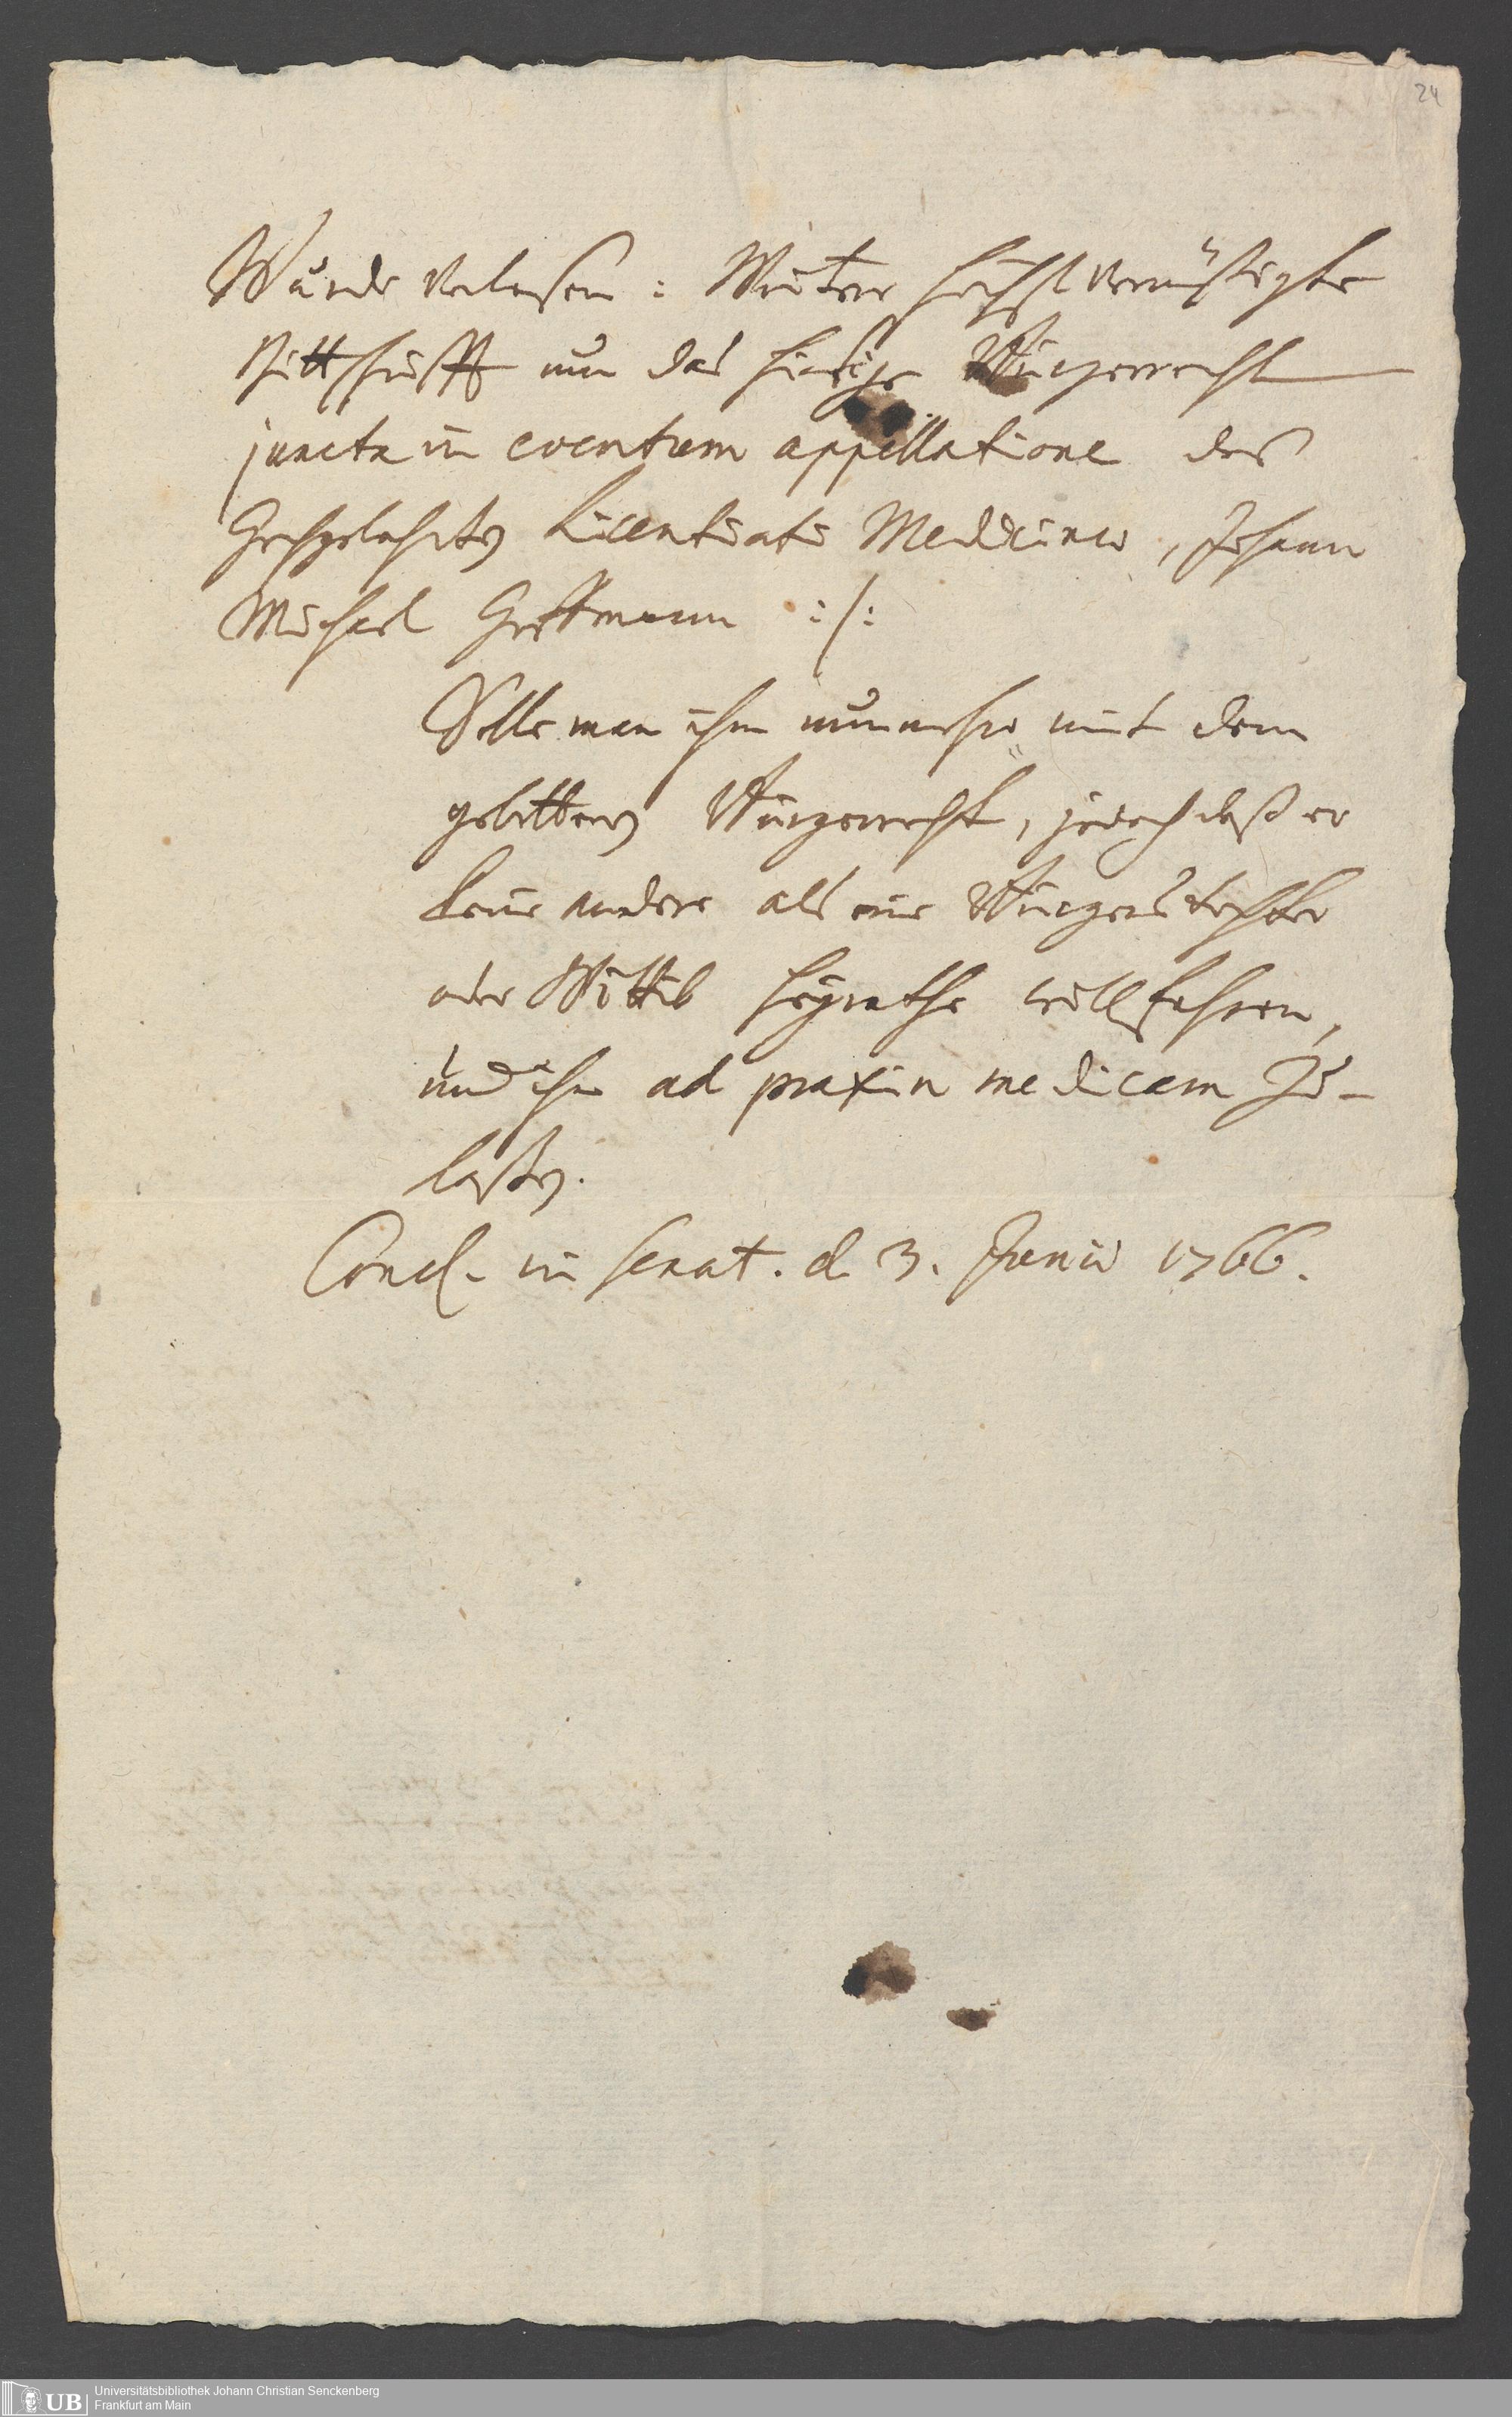 24
Wurde verlesen: Weitere höchst vermüsigte
Bittschrifft um das hiesige Burgerrecht
juncta in eventum appellatione des
Hochgelahrten Licentiati Medicinae, Johann
Michael Hoffmann :/:
Solle man ihm nunmehro mit dem
gebettenen Burgerrecht, jedoch daß er
keine andere als eine Burgers tochter
oder Wittib heyrathe willfahren,
und ihn ad praxin medicam zu-
laßen.
Concl. in Senat. d. 3. Junii 1766.
UB
Universitätsbibliothek Johann Christian Senckenberg
Frankfurt am Main